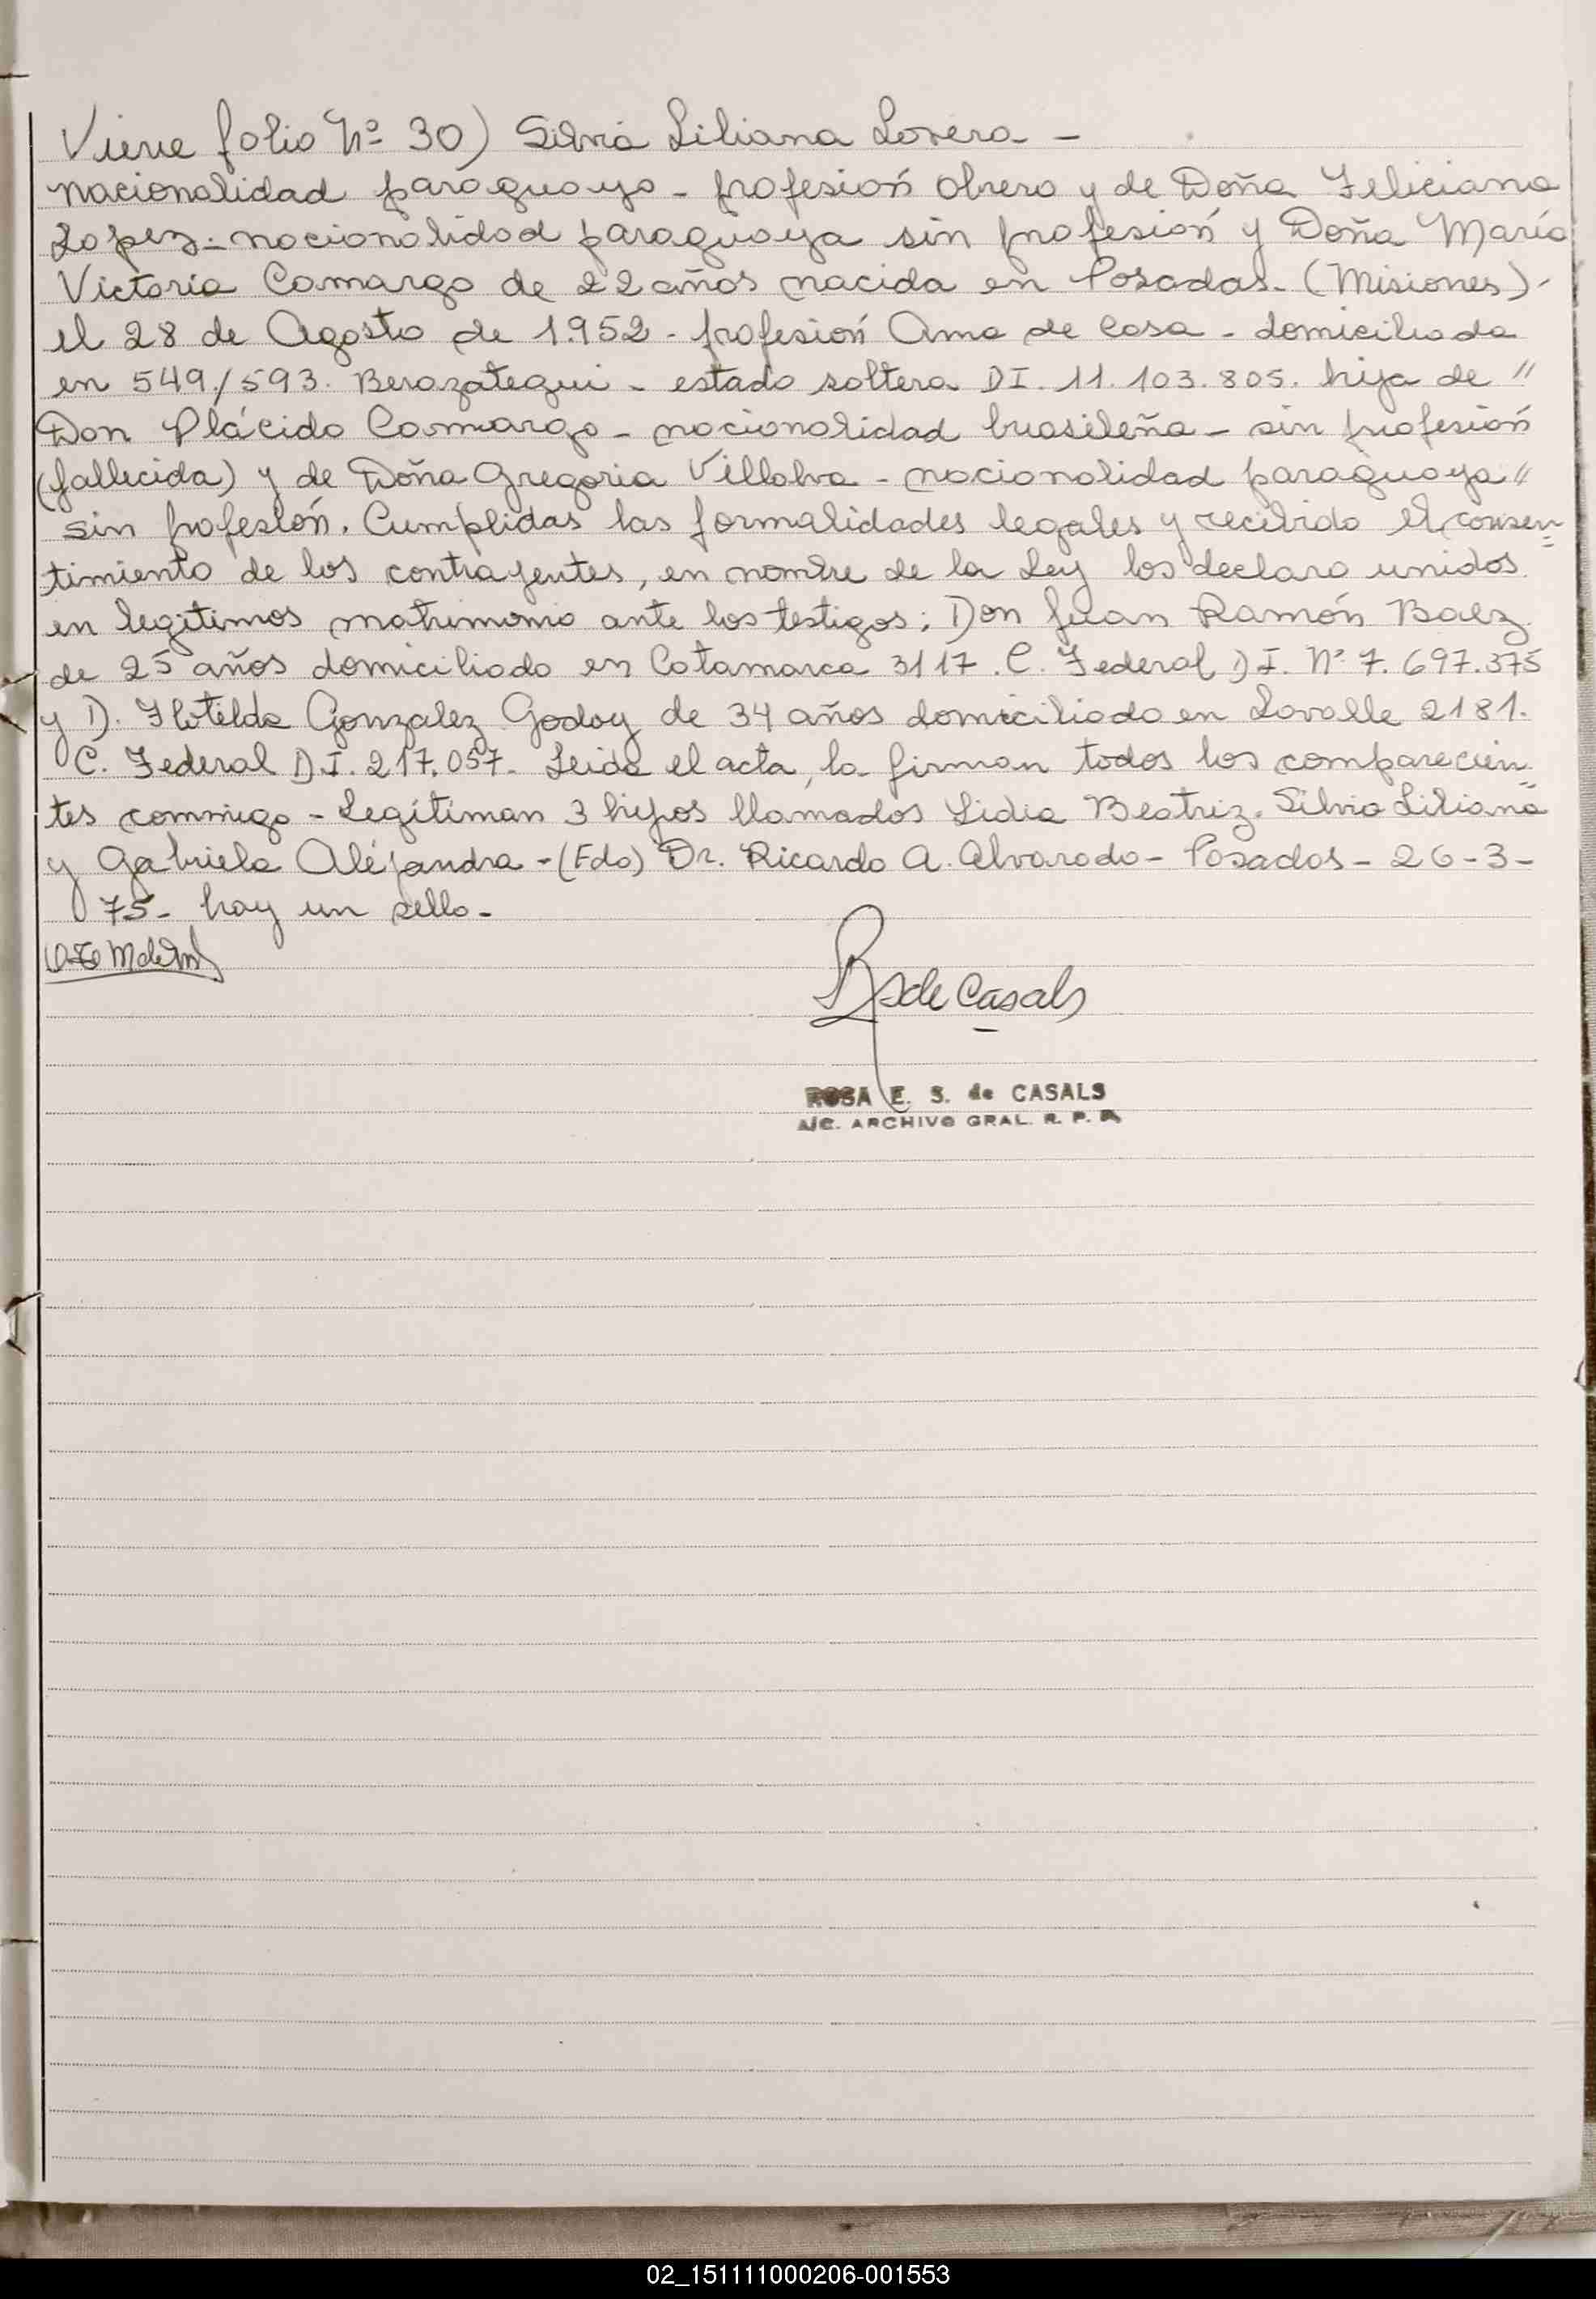 Viene folio Nº 30) Silvia Liliana Lovera -
nacionalidad paraguayo - profesión obrero y de Doña Feliciana
Lopez - nacionalidad paraguaya sin profesión y Doña María
Victoria Camargo de 22 años nacida en Posadas - (Misiones) -
el 28 de Agosto de 1.952 - profesión Ama de Casa - domiciliada
en 549/593. Berazategui - estado soltera DI. 11.103.805. hija de "
Don Plácido Camargo - nacionalidad brasileña - sin profesión
(fallecida) y de Doña Gregoria Villalva - nacionalidad paraguaya "
sin profesión. Cumplidas las formalidades legales y recibido el consen=
timiento de los contrayentes, en nombre de la Ley los declaro unidos
en legitimos matrimonio ante los testigos: Don Juan Ramón Baez
de 25 años domiciliado en Catamarca 3117. C. Federal DI. Nº 7.697.375
y D. Flotilda Gonzalez Godoy de 34 años domiciliado en Lavalle 2181.
C. Federal D.I. 217.057 - Leida el acta, la firman todos los comparecien=
tes conmigo - Legítiman 3 hijos llamados Lidia Beatriz. Silvia Liliana
y Gabriela Aléjandra - (Fdo) Dr. Ricardo A. Alvarado - Posadas - 26-3-
75 - hay un sello -
R S de Casals
ROSA E. S. de CASALS
A/C. ARCHIVO GRAL. R. P. P.
02_151111000206-001553